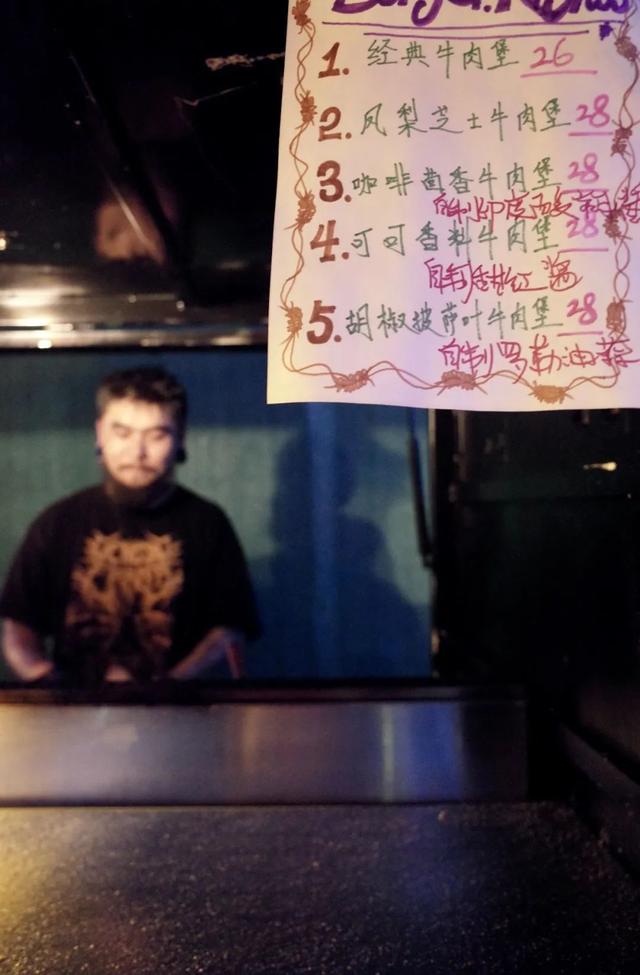 1. 经典牛肉堡 26
2. 凤梨芝士牛肉堡 28
3. 咖啡茴香牛肉堡 28
自制印度
4. 可可香料牛肉堡 28
自制 红酱
5. 胡椒披萨叶牛肉堡 28
自制罗勒油